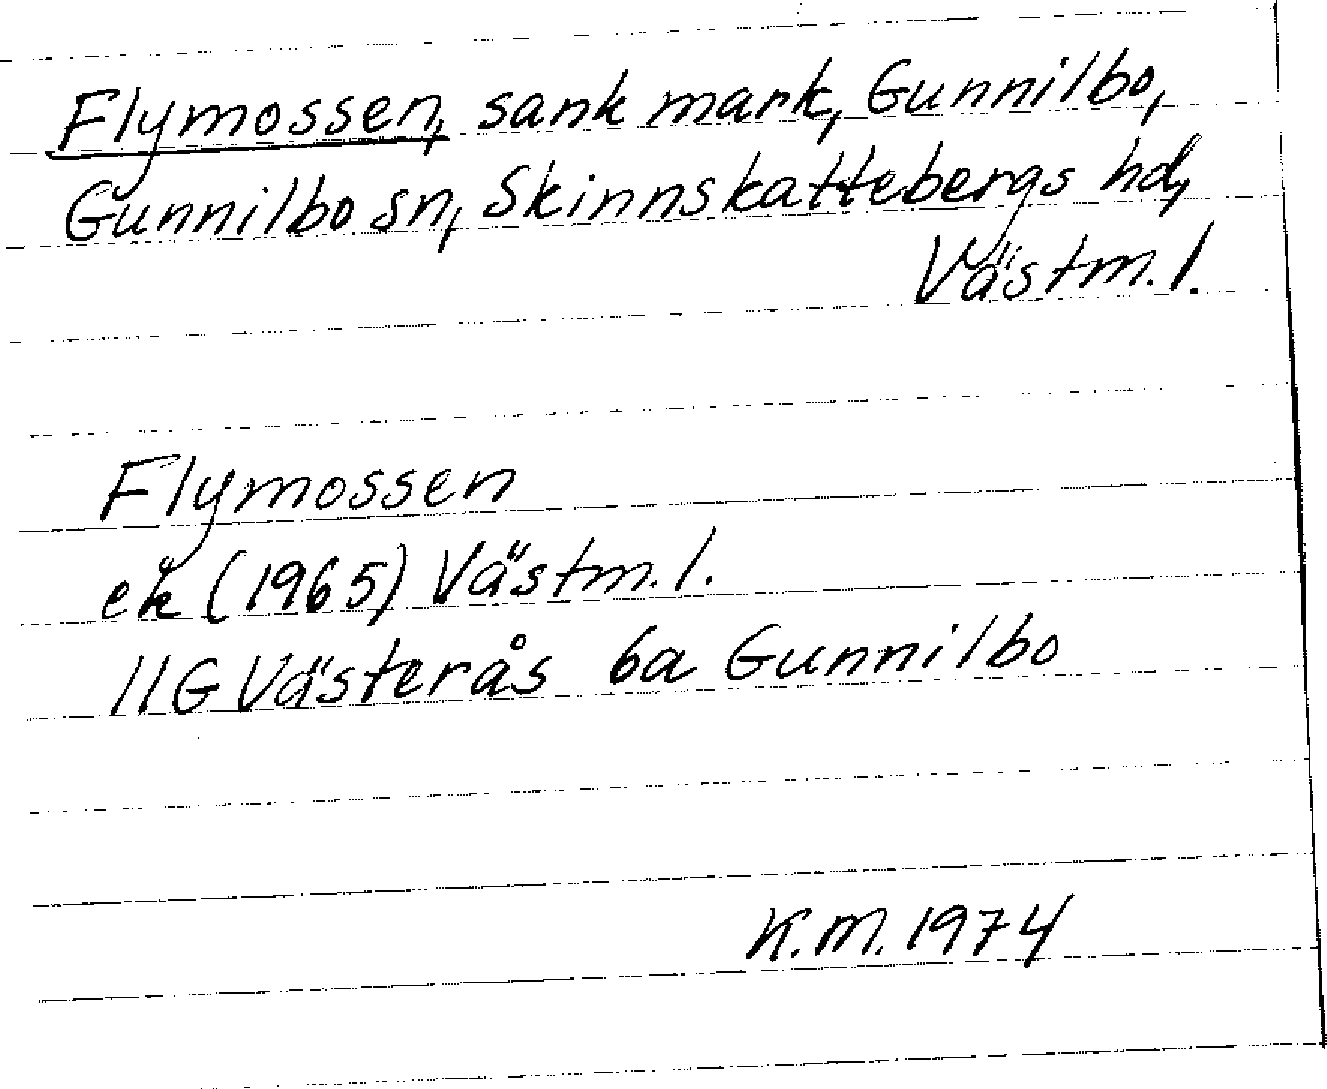 Flymossen, sank mark, Gunnilbo,
Gunnilbo sn, Skinnskattebergs hd,
Västm. l.
Flymossen
ek (1965) Västm. l.
11G Västerås 6a Gunnilbo
K.M. 1974